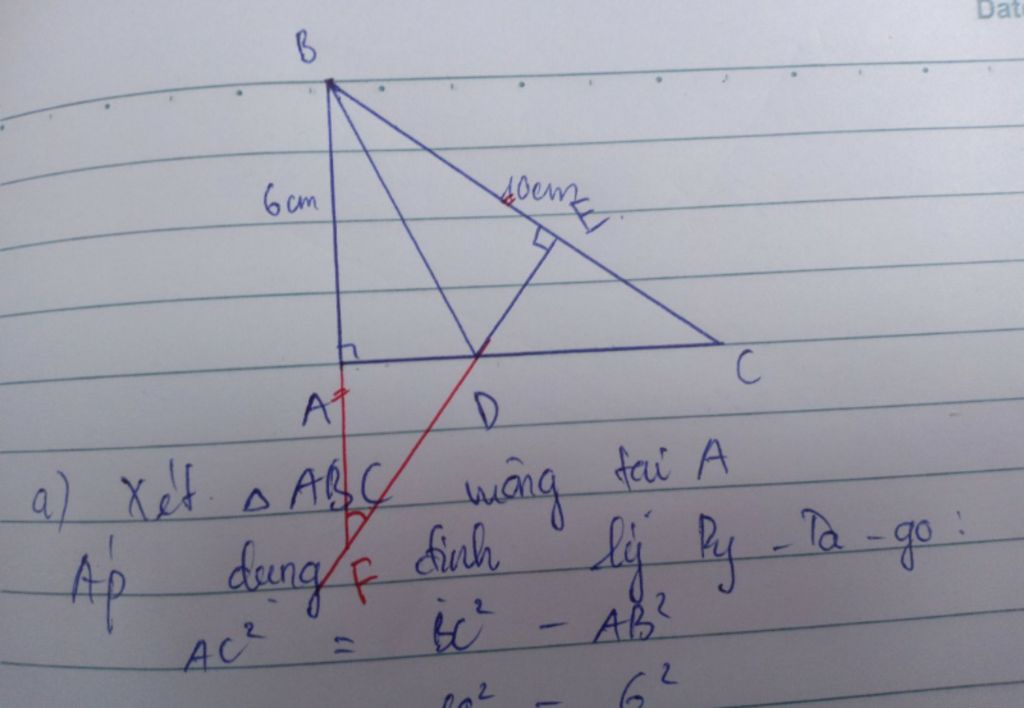 Date
B
6cm
10cm
E
A
D
C
a) Xét △ ABC vuông tai A
F
Áp dụng định lý Py - Ta - go :
AC² = BC² - AB²
10² - 6²